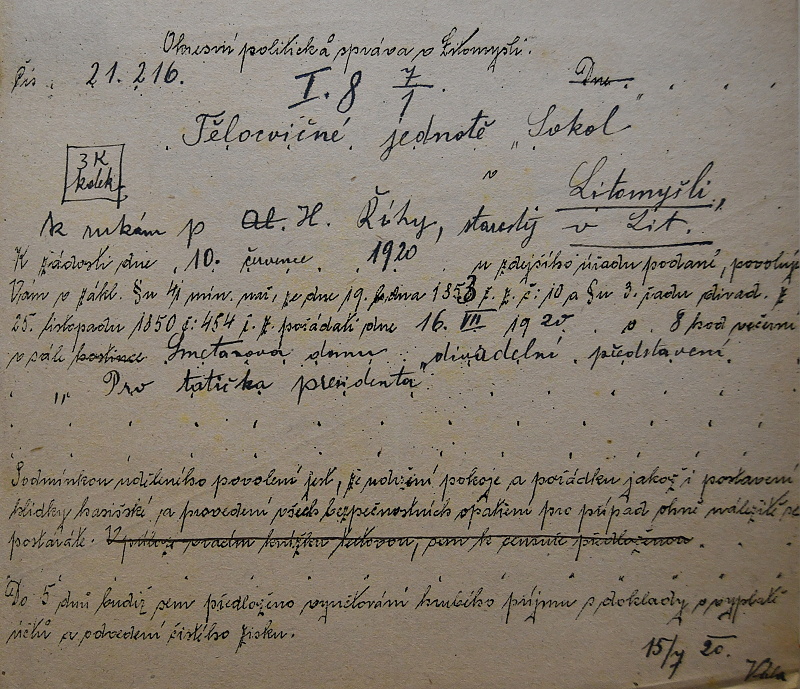 Okresní politická správa v Litomyšli.
Čís. 21.216. Dne
I. 8 7/1.
Tělocvičné jednotě „Sokol
3 K
kolek
v Litomyšli“
k rukám p Al. H. Říhy, starosty v Lit.
K žádosti dne 10. července 1920 u zdejšího úřadu podané, povoluji
Vám v zákl. §u 4 min. nař. ze dne 19. ledna 1853 č. ř. z. č: 10 a §u 3. řadu divad. z
25. listopadu 1850 č: 454 ř. z. pořádati dne 16. VII 1920 o 8 hod večerní
v sále hostince Smetanova domu divadelní představení
„Pro tatíčka presidenta“
Podmínkou uděleného povolení jest, že udržení pokoje a pořádku jakož i postavení
hlídky hasičské a provedení všech bezpečnostních opatření pro případ ohně náležitě se
postaráte. V příloze vracím knížku textovou, sem k censuře předloženou.
Do 5 dnů budiž sem předloženo vyúčtování hrubého příjmu s doklady o vyplatě
účtů a odvedení čistého zisku.
15/7 20.